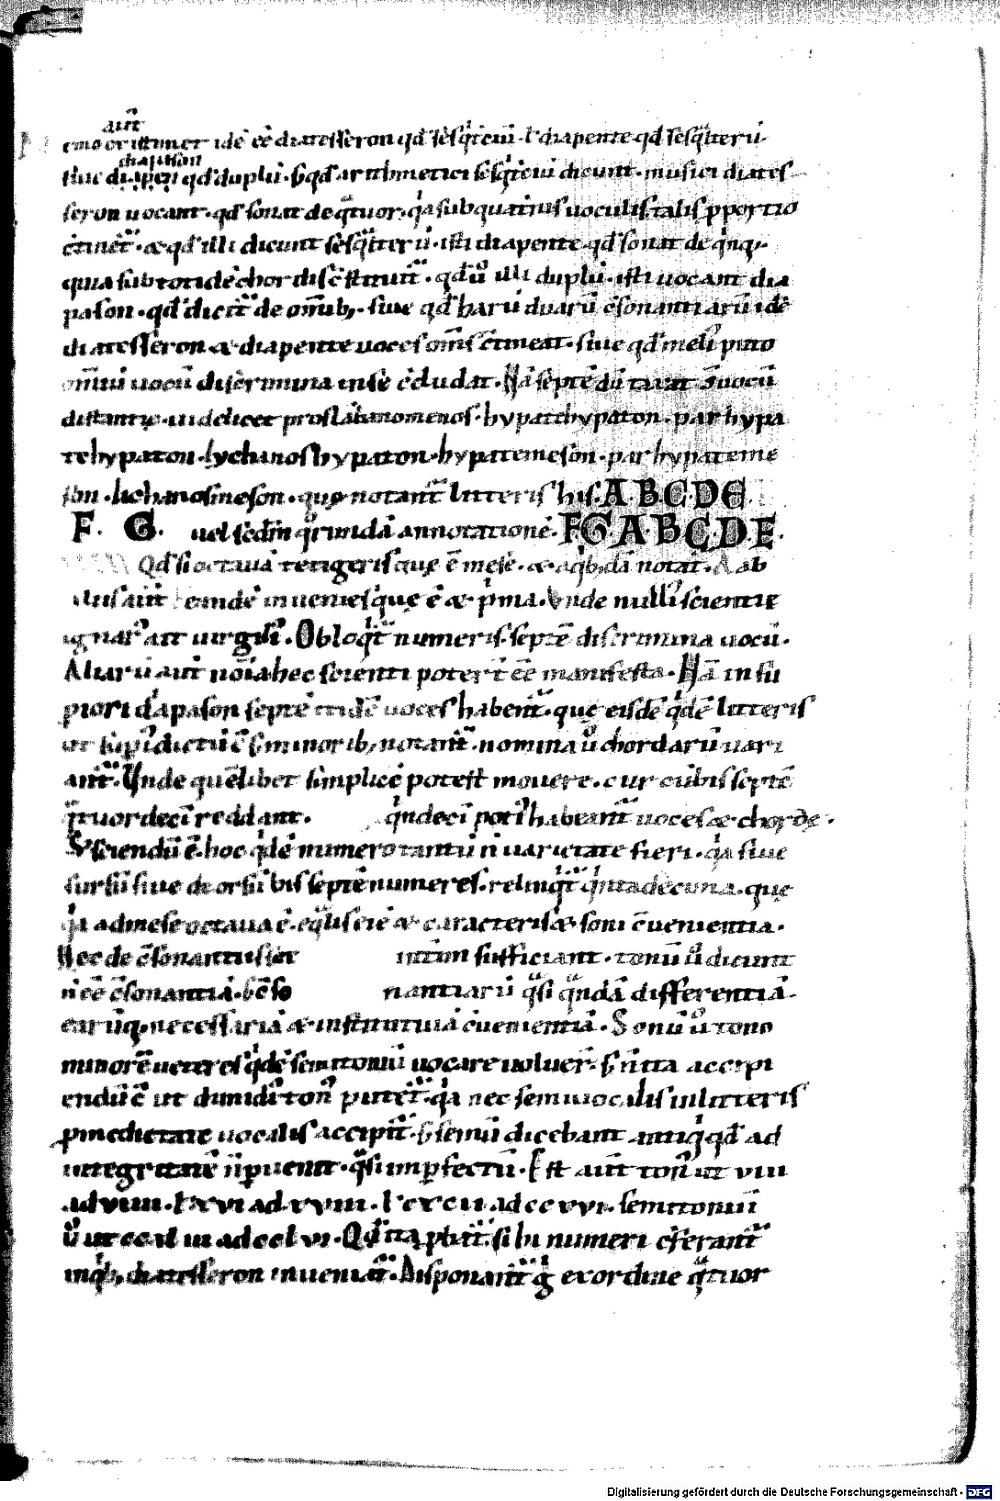 aut̄
idē ēē diatesseron qd̄ sesq̄terciū · ł diapente qd̄ sesq̄lterū ·
diapason
siue diapen qd̄ duplū · S; qd̄ arithmetici sesq̄terciū dicunt · musici diates-
seron uocant · qd̄ sonat de q̄tuor · q̄a sub quaternis uoculis talis pportio
ctinet̄ · & qd̄ illi dicunt sesq̄lterū · isti diapente · qd̄ sonat de q̄nq; ·
quia sub totidē chordis cstituit̄ · qd̄ ů illi duplū · isti uocant dia
pason · qd̄ dicit̄ de omīb; · siue qd̄ harū duarū csonantiarū idē
diatesseron & diapente uoces omīs ctineat · siue qd̄ meli' puto
omīū uocū discrimina in se ccludat · Nā septē dū taxat s̄ uocū
distantię · uidelicet proslābanomenos · hypatehypaton · parhypa
tehypaton · lychanoshypaton · hypatemeson · parhypateme
son · lichanosmeson · quę notant̄ litteris his · A · B · C · D · E ·
F · G · uel scdm q̄rundā annotationē · F G A B C D E ·
Qd̄ si octauā tetigeris quę ē mese · & a q̄b;dā notat̄ · A ab
aliis aut̄ eandē inuenies quę ē & p̄ma · Vnde nulli' scientię
ignar' ait uirgili' · Obloq̄t̄ numeris septē discrimina uocū ·
Aliarū aut̄ noīa hec scienti poter̄t ēē manifesta · Nā in su
piori diapason septē itidē uoces habent̄ · quę eisdē q̄dē litteris
ut sup'dictū ē s; minorib; notant̄ · nomina ů chordarū uari
ant̄ · Vnde quēlibet simplicē potest mouere · cur cū bis septē
q̄tuordecī reddant · q̄ndecī poti' habeant̄ uoces & chordę ·
Sciendū ē hoc q̄dē numero tantū n̄ uarietate fieri · q̄a siue
sursū siue deorsū bis septē numeres · relinq̄t̄ q̄ntadecima · quę
q̄a ad mese octaua ē · eq̄lis ei ē & caracteris & soni cuenientia ·
Hec de csonantiis int̄im sufficiant · tonū ů dicunt
n̄ ēē csonantiā · s; cso nantiarū q̄si q̄ndā differentiā ·
earūq; necessariā & institutiuā cuenientiā · Sonū ů tono
minorē ueteres q̄dē semitoniū uocare uoluer̄ · s; n̄ ita accipi
endū ē ut dimidi' ton' putet̄ · q̄a nec semiuocalis in litteris
p medietate uocalis accipit̄ · s; semū dicebant antiq̄ qd̄ ad
integritatē n̄ puenit · q̄si impfectū · Est aut̄ ton' ut VIII
ad VIIII · semitoniū
ů ut CCXLIII ad CCLVI · Qd̄ ita pbat̄ · si hi numeri cferant̄
in q̄b; diatesseron inuenit̄ · Disponant̄ g̊ ex ordine q̄tuor
Digitalisierung gefördert durch die Deutsche Forschungsgemeinschaft - DFG